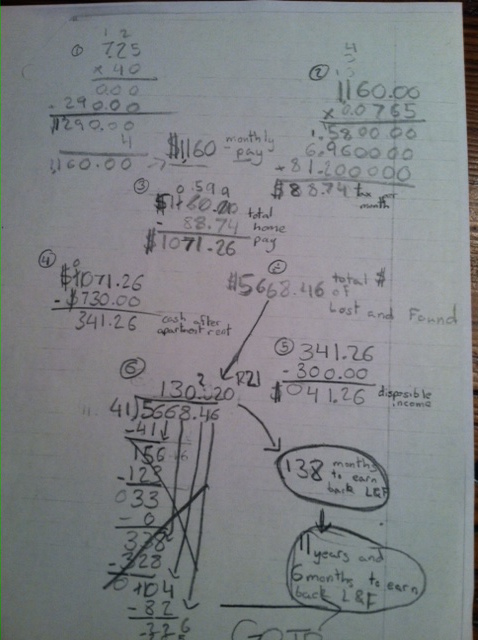 ①
1 2
7.25
x 40
0.00
290.00
1290.00
4
1,160.00 → $1160 monthly pay
②
1160.00
x 0.0765
1.580000
6.960000
+81.200000
$88.74 tax per month
③
0.599
$1160.00
- 88.74
$1071.26
total home pay
④
$1071.26
- $730.00
341.26
cash after apartment rent
$5668.46 total $ of Lost and Found
⑤
341.26
- 300.00
$041.26 disposible income
⑥
130.20
41)5668.46
-41
156
-123
033
- 0
338
-328
104
-82
226
138 months to earn back L&F
11 years and 6 months to earn back L&F
GOTO